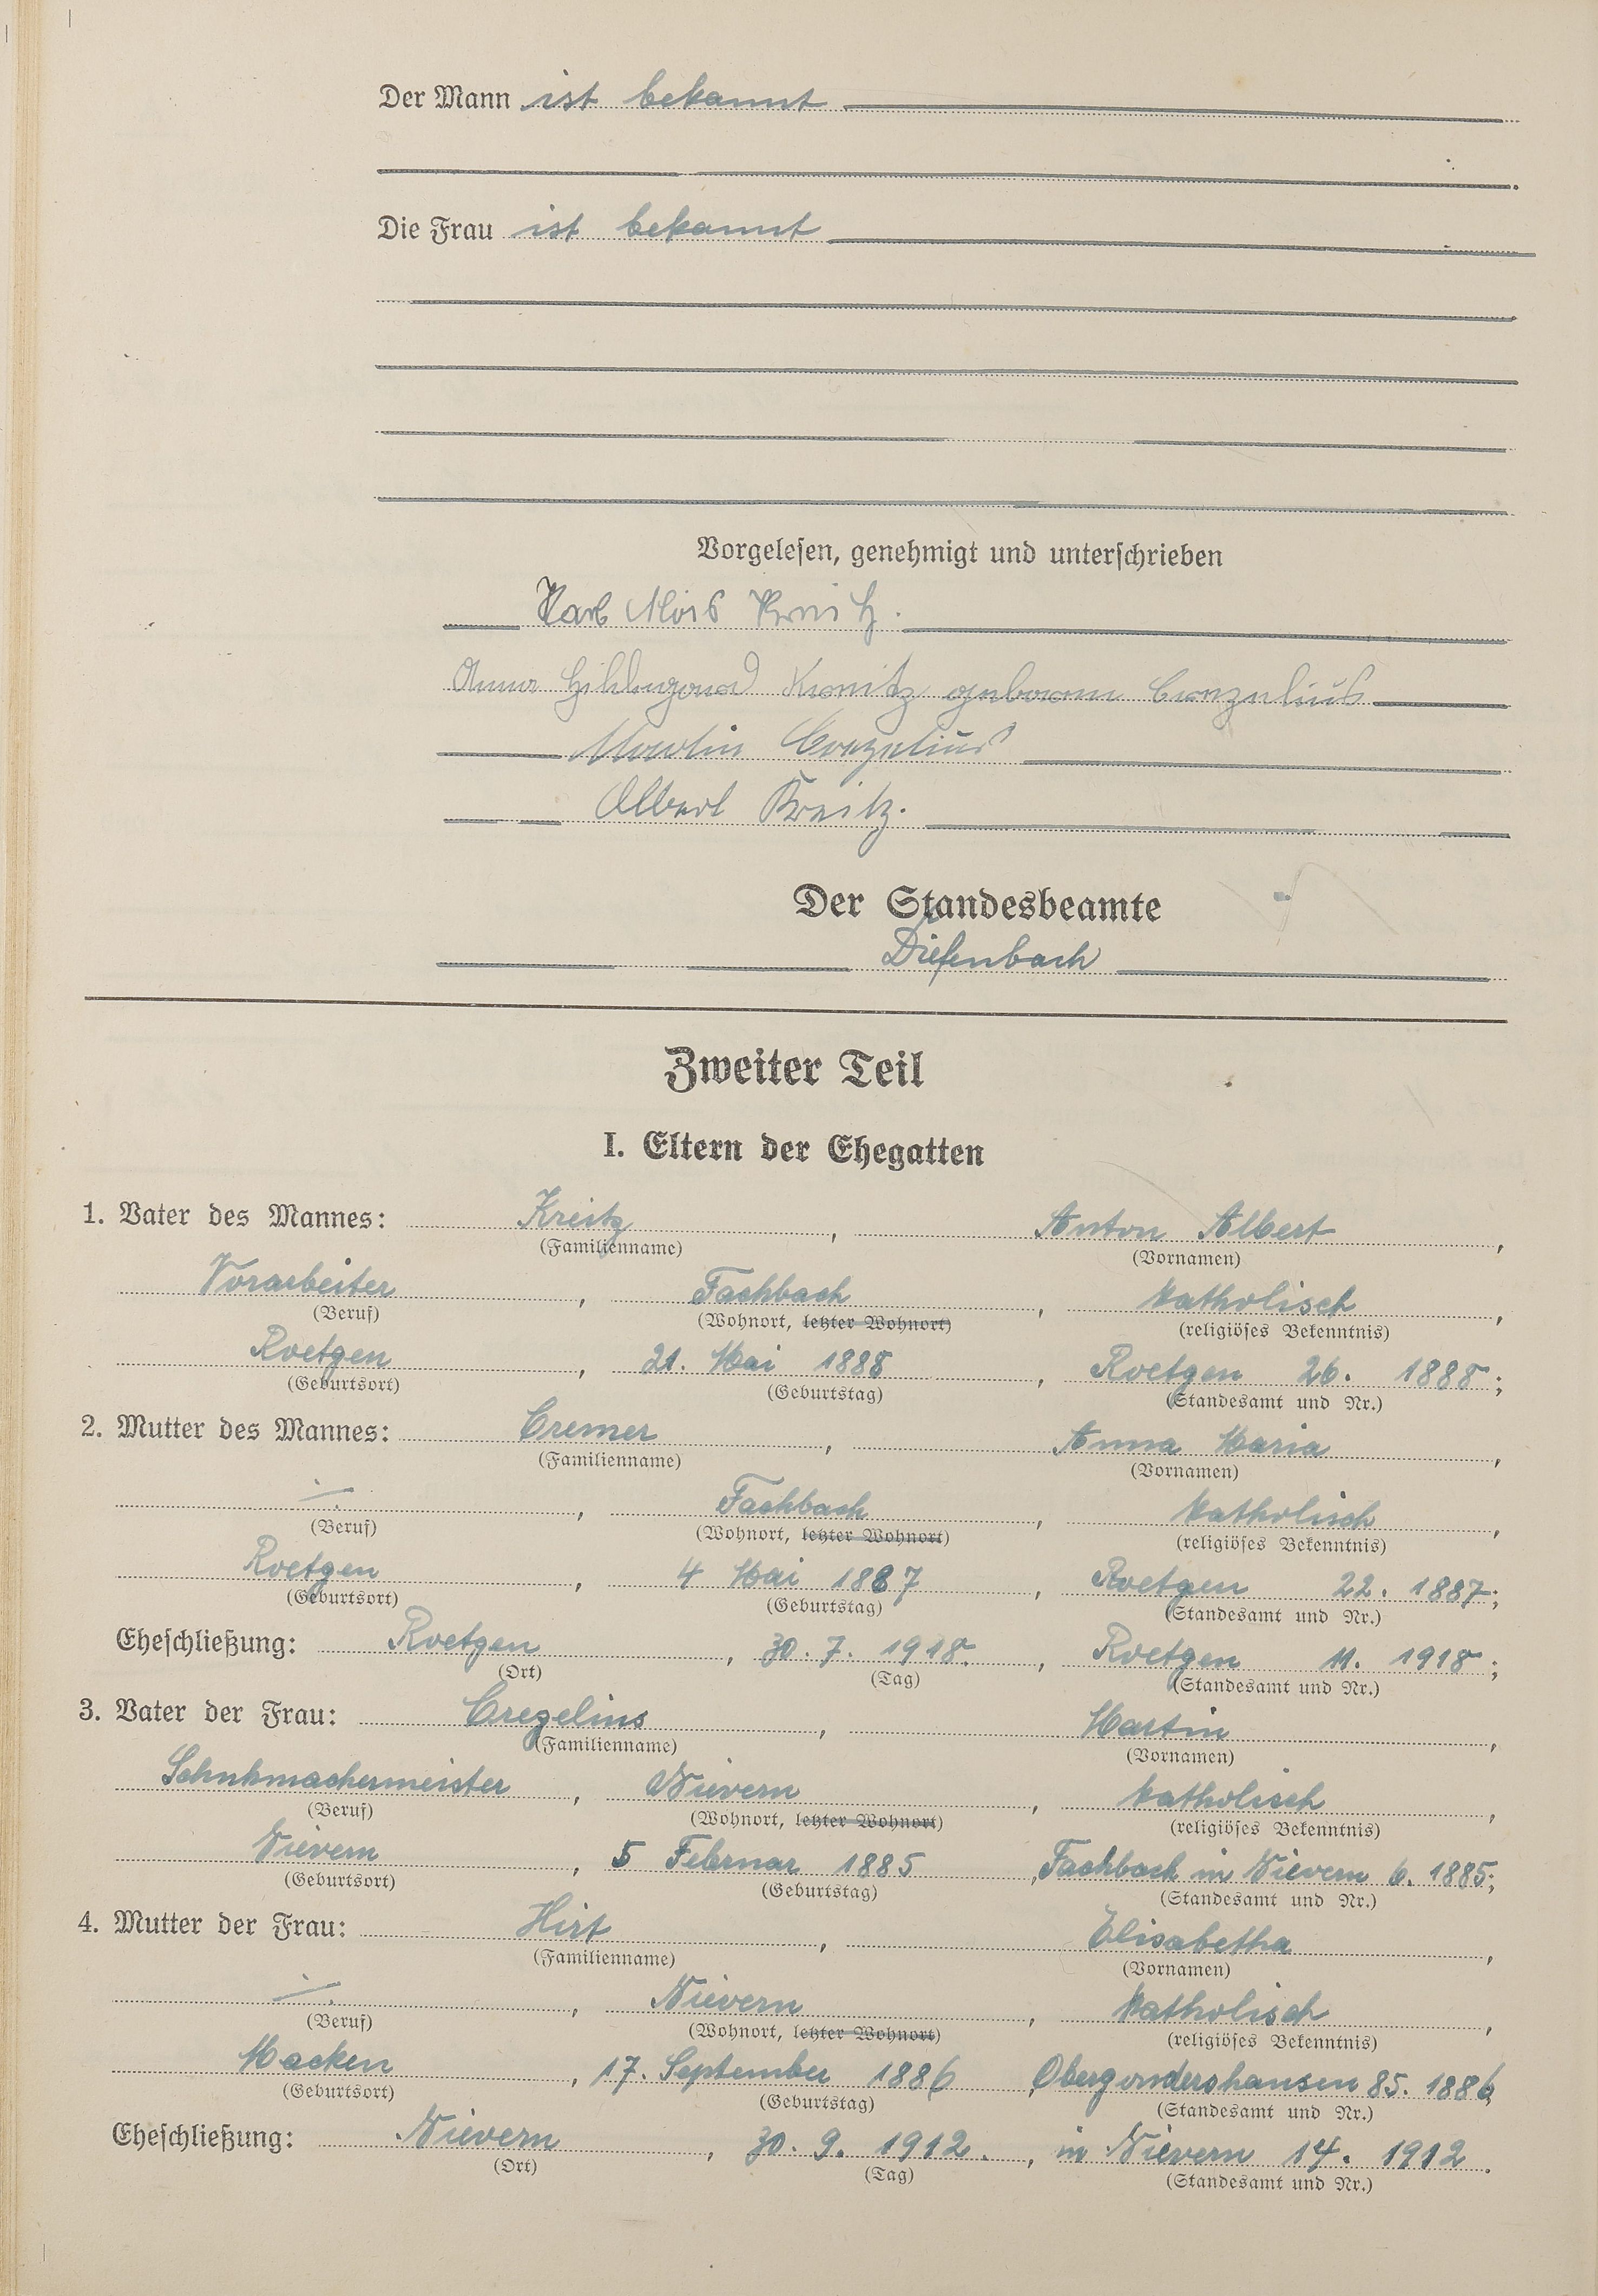 Der Mann ist bekannt
Die Frau ist bekannt
Vorgelesen, genehmigt und unterschrieben
Karl Alois Kreitz.
Anna Hildegard Kreitz geborene Crezelius
Martin Crezelius
Albert Kreitz.
Der Standesbeamte
Diefenbach
Zweiter Teil
I. Eltern der Ehegatten
1. Vater des Mannes: Kreitz, Anton Albert,
(Familienname) (Vornamen)
Vorarbeiter, Fachbach, katholisch,
(Beruf) (Wohnort, letzter Wohnort) (religiöses Bekenntnis)
Roetgen, 21. Mai 1888, Roetgen 26. 1888;
(Geburtsort) (Geburtstag) (Standesamt und Nr.)
2. Mutter des Mannes: Cremer, Anna Maria,
(Familienname) (Vornamen)
-/-, Fachbach, katholisch,
(Beruf) (Wohnort, letzter Wohnort) (religiöses Bekenntnis)
Roetgen, 4 Mai 1887, Roetgen 22. 1887;
(Geburtsort) (Geburtstag) (Standesamt und Nr.)
Eheschließung: Roetgen, 30. 7. 1918., Roetgen 11. 1918;
(Ort) (Tag) (Standesamt und Nr.)
3. Vater der Frau: Crezelius, Martin,
(Familienname) (Vornamen)
Schuhmachermeister, Nievern, katholisch,
(Beruf) (Wohnort, letzter Wohnort) (religiöses Bekenntnis)
Nievern, 5 Februar 1885, Fachbach in Nievern 6. 1885;
(Geburtsort) (Geburtstag) (Standesamt und Nr.)
4. Mutter der Frau: Hirt, Elisabetha,
(Familienname) (Vornamen)
-/-, Nievern, katholisch,
(Beruf) (Wohnort, letzter Wohnort) (religiöses Bekenntnis)
Macken, 17. September 1886, Obergondershausen 85. 1886;
(Geburtsort) (Geburtstag) (Standesamt und Nr.)
Eheschließung: Nievern, 30. 9. 1912., in Nievern 14. 1912.
(Ort) (Tag) (Standesamt und Nr.)